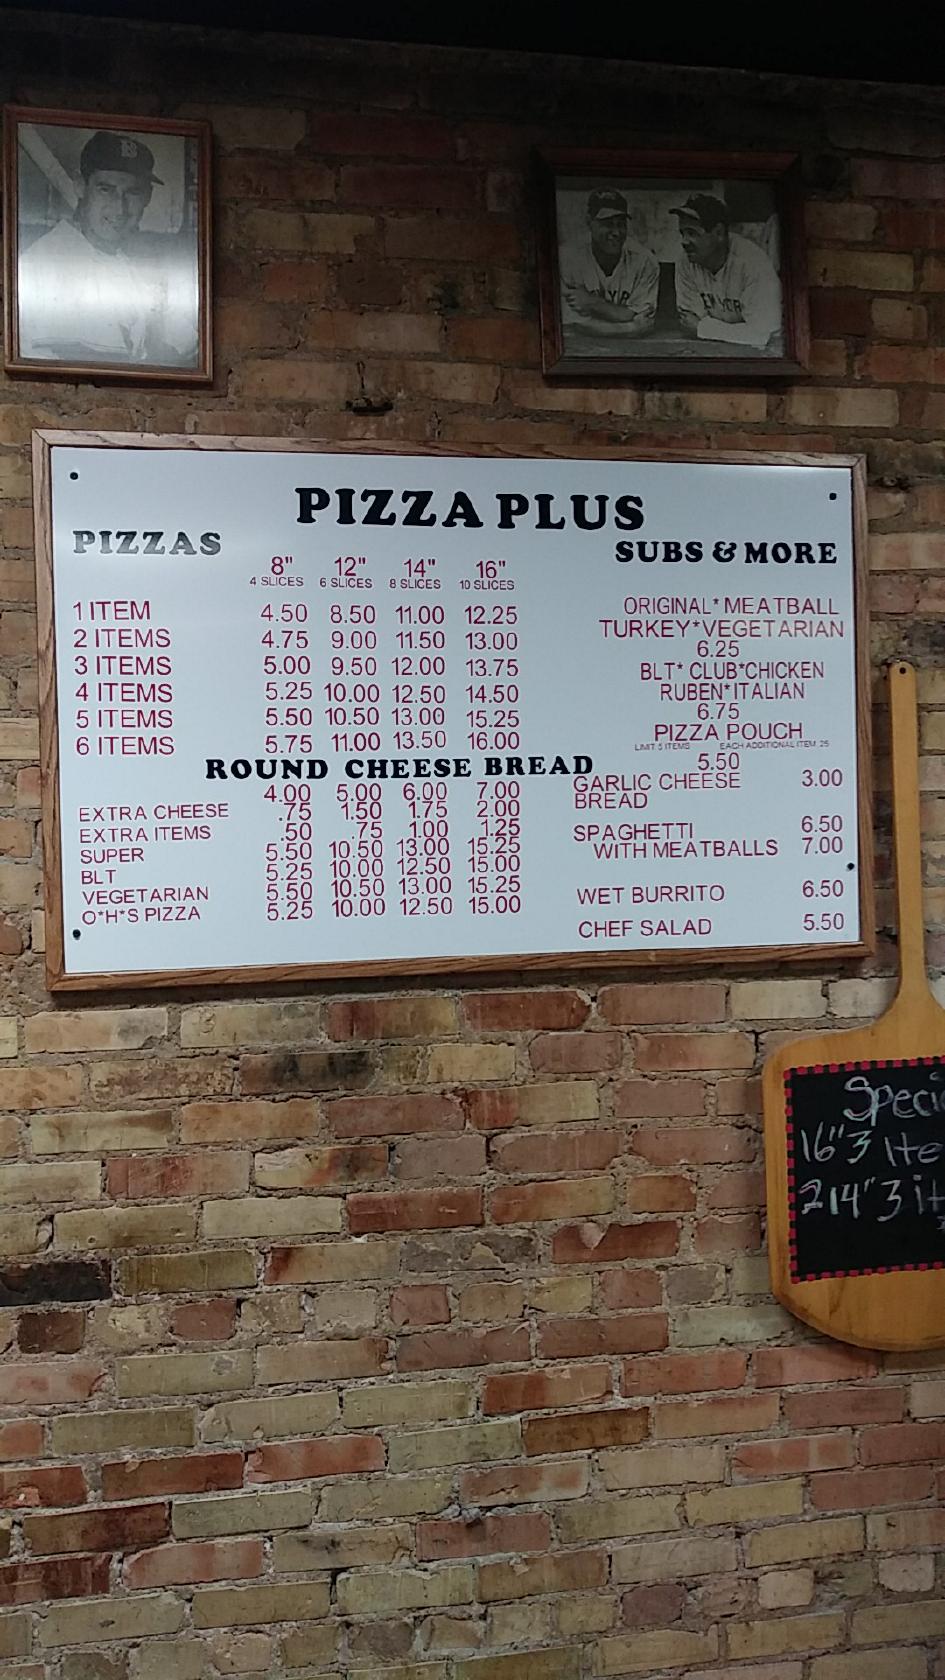 B
PIZZA PLUS
PIZZAS
8" 12" 14" 16"
4 SLICES 6 SLICES 8 SLICES 10 SLICES
1 ITEM 4.50 8.50 11.00 12.25
2 ITEMS 4.75 9.00 11.50 13.00
3 ITEMS 5.00 9.50 12.00 13.75
4 ITEMS 5.25 10.00 12.50 14.50
5 ITEMS 5.50 10.50 13.00 15.25
6 ITEMS 5.75 11.00 13.50 16.00
ROUND CHEESE BREAD
4.00 5.00 6.00 7.00
EXTRA CHEESE .75 1.50 1.75 2.00
EXTRA ITEMS .50 .75 1.00 1.25
SUPER 5.50 10.50 13.00 15.25
BLT 5.25 10.00 12.50 15.00
VEGETARIAN 5.50 10.50 13.00 15.25
O*H*S PIZZA 5.25 10.00 12.50 15.00
SUBS & MORE
ORIGINAL* MEATBALL
TURKEY*VEGETARIAN
6.25
BLT* CLUB*CHICKEN
RUBEN*ITALIAN
6.75
PIZZA POUCH
LIMIT 5 ITEMS EACH ADDITIONAL ITEM .25
5.50
GARLIC CHEESE 3.00
BREAD
SPAGHETTI 6.50
WITH MEATBALLS 7.00
WET BURRITO 6.50
CHEF SALAD 5.50
Speci
16" 3 Ite
2 14" 3 it